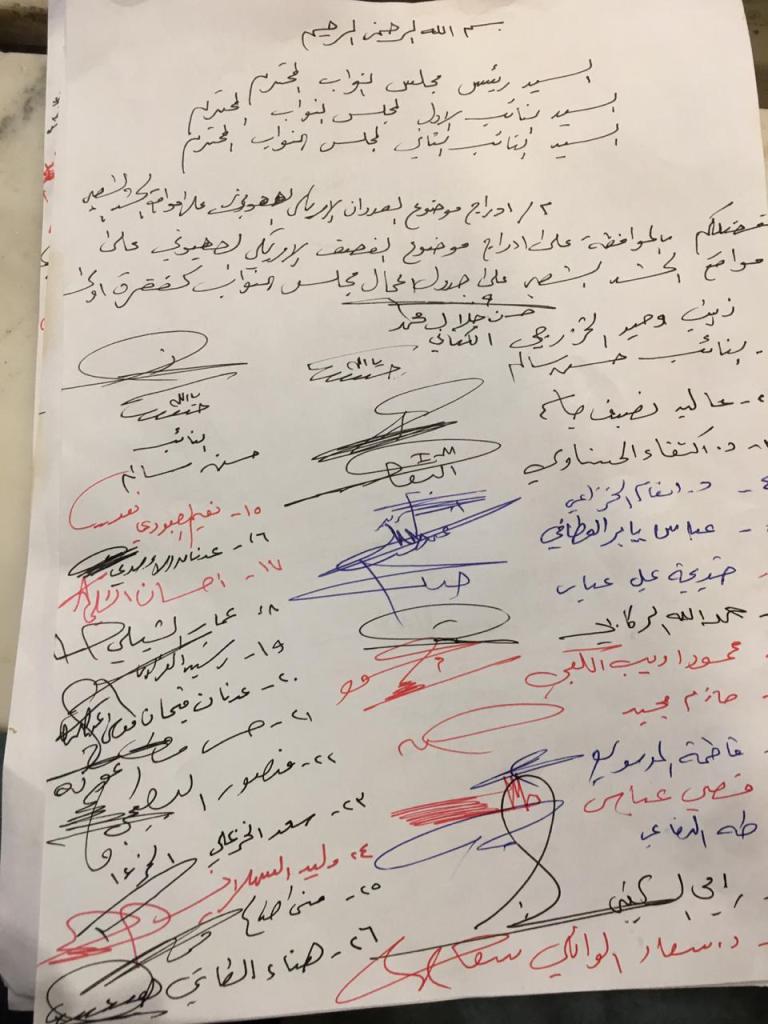 بسم الله الرحمن الرحيم
السيد رئيس مجلس النواب المحترم
السيد النائب الاول لمجلس النواب المحترم
السيد النائب الثاني لمجلس النواب المحترم
م/ ادراج موضوع العدوان الامريكي الصهيوني على مواقع الحشد الشعبي
تفضلكم بالموافقة على ادراج موضوع القصف الامريكي الصهيوني على
مواقع الحشد الشعبي على جدول اعمال مجلس النواب كفقرة اولى
زينب وحيد الخزرجي
حسن جلال محمد الكناني
النائب حسن سالم
٢- عالية نصيف جاسم
د. اكتفاء الحسناوي
د. انعام الخزاعي
عباس يابر العطافي
خديجة علي عباس
حمدالله الركابي
محمود اديب الكعبي
حازم مجيد
فاطمة
قصي عباس
طه الدفاعي
رامي السكيني
د. سعاد الوائلي
النائب
حسن سالم
١٥- نعيم العبودي
١٦- عدنان الاسدي
١٧- احسان
١٨- عمار الشبلي
١٩- رشيد
٢٠- عدنان فيحان موسى
٢١- حسن
٢٢- منصور البعيجي
٢٣- سعد الخزعلي
٢٤- وليد السهلاني
٢٥- منى
٢٦- هناء الطائي